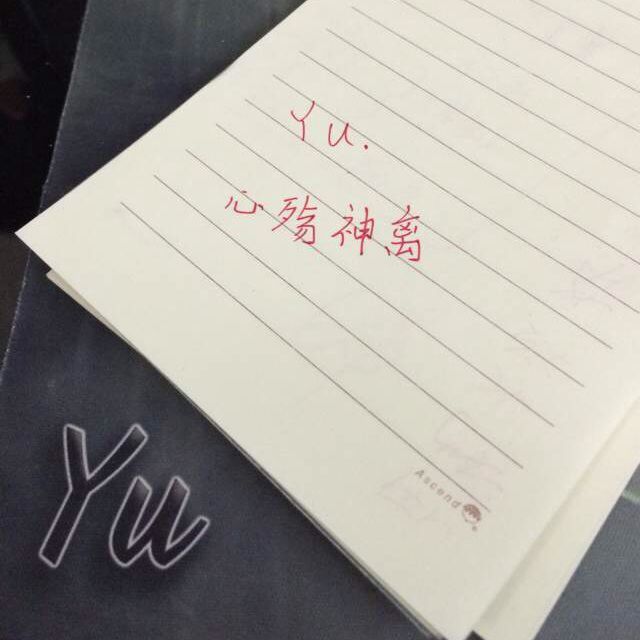 Yu.
心殇神离
Ascend
Yu